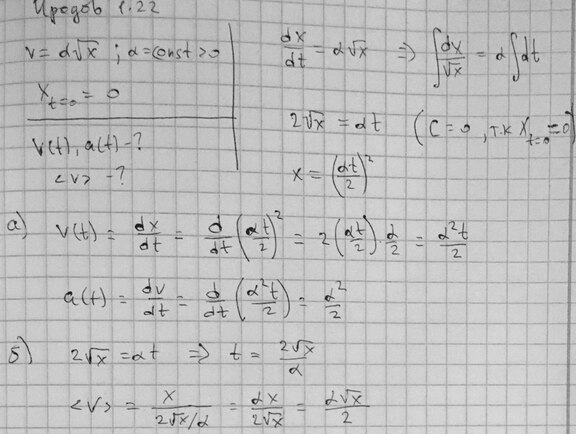 Иродов 1.22
v = α√x ; α = const > 0
x_{t=0} = 0
v(t), a(t) - ?
<v> - ?
dx/dt = α√x ⇒ ∫dx/√x = α∫dt
2√x = αt (C = 0, т.к x_{t=0} = 0)
x = (αt/2)²
а) v(t) = dx/dt = d/dt (αt/2)² = 2(αt/2)·α/2 = α²t/2
a(t) = dv/dt = d/dt (α²t/2) = α²/2
б) 2√x = αt ⇒ t = 2√x/α
<v> = x/(2√x/α) = αx/(2√x) = α√x/2